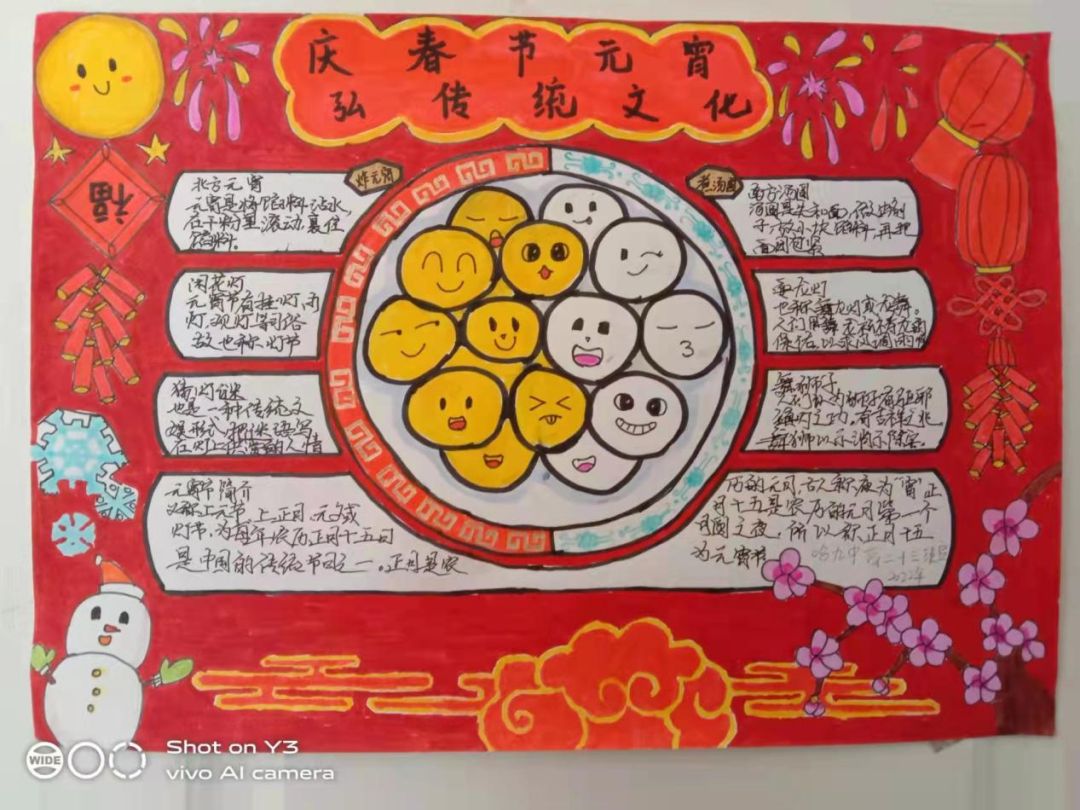 庆春节元宵
弘传统文化
福
炸元宵
北方元宵
元宵是将馅料沾水,
在干粉里滚动,裹住
馅料。
闹花灯
元宵节有挂灯,闹
灯,观灯等习俗
故也称灯节
猜灯谜
也是一种传统文
娱形式,把谜语写
在灯上供人猜
煮汤圆
南方汤圆
汤圆是先和面,做出剂
子,放小块馅料,再把
面团包紧
耍龙灯
也称舞龙灯或龙舞。
人们用舞龙祈祷龙的
保佑,以求风调雨
舞狮子
人们认为狮子有驱邪
有吉祥之兆
舞狮以示消除
元宵节简介
又称上元节,上正月,元
灯节,为每年农历正月十五日
是中国的传统节日之一。正月是农
历的元月,古人称夜为“宵”正
月十五是农历的元月第一个
月圆之夜,所以称正月十五
为元宵节
哈九中 二十三班
2022年
WIDE
Shot on Y3
vivo AI camera